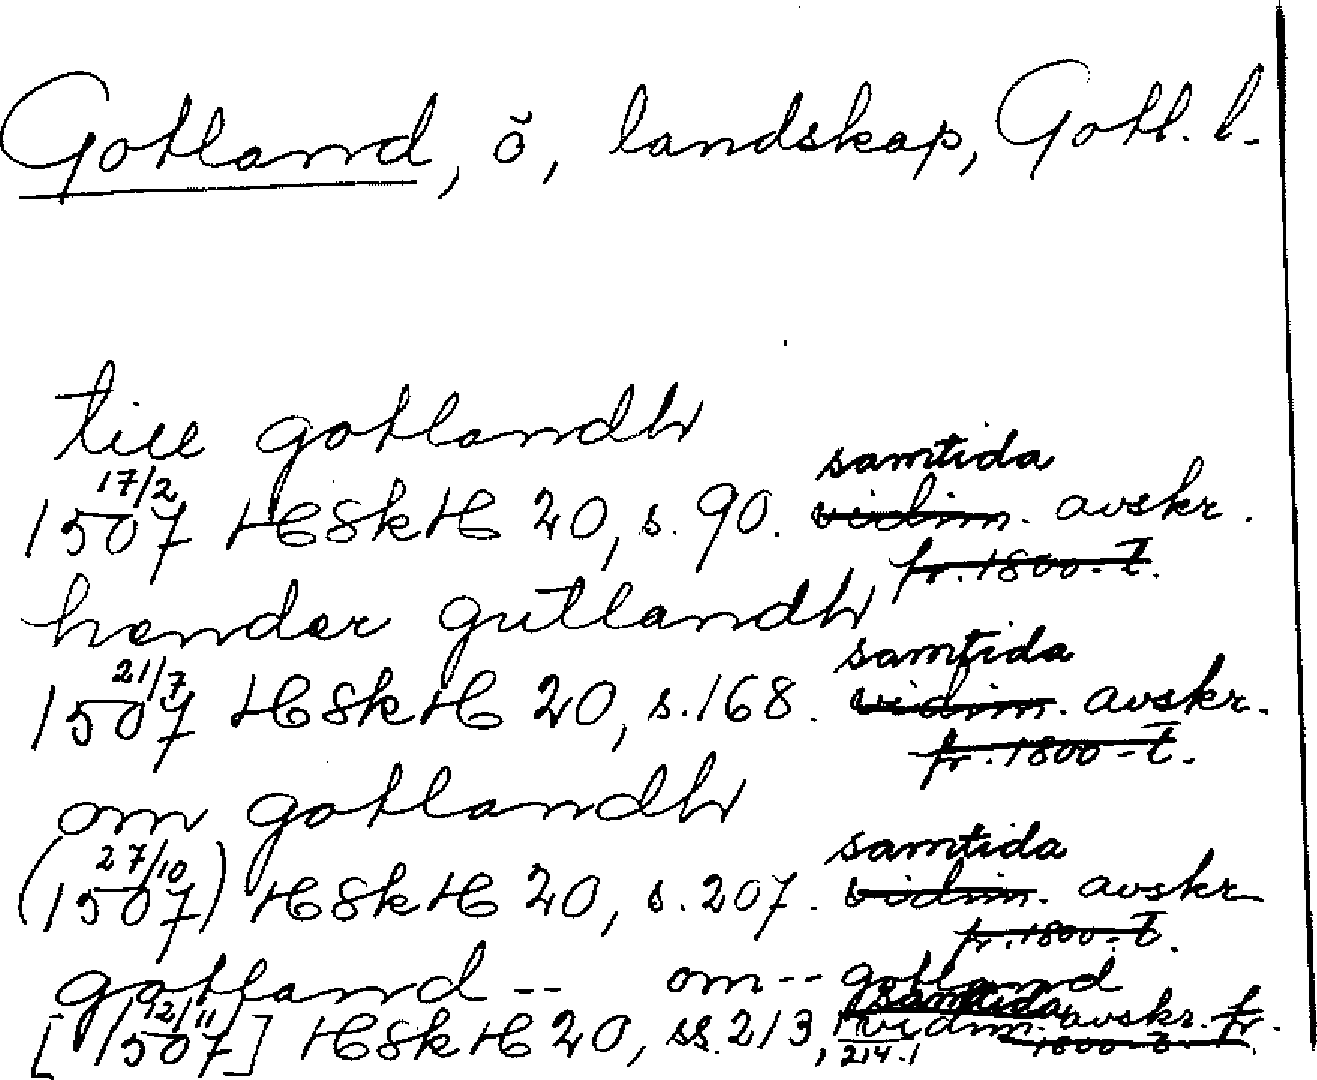 Gotland, ö, landskap, Gotl. l.
till gotlandh
samtida
17/2
1507 HSkH 20, s. 90. vidim. avskr.
fr. 1800-t.
hender gutlandh
samtida
21/7
1507 HSkH 20, s. 168. vidim. avskr.
fr. 1800-t.
om gotlandh
samtida
27/10
(1507) HSkH 20, s. 207. vidim. avskr
fr. 1800-t.
gotland -- om -- gotland
12/11 samtida
[1507] HSkH 20, ss. 213, 214. vidim. avskr. fr.
1800-t.